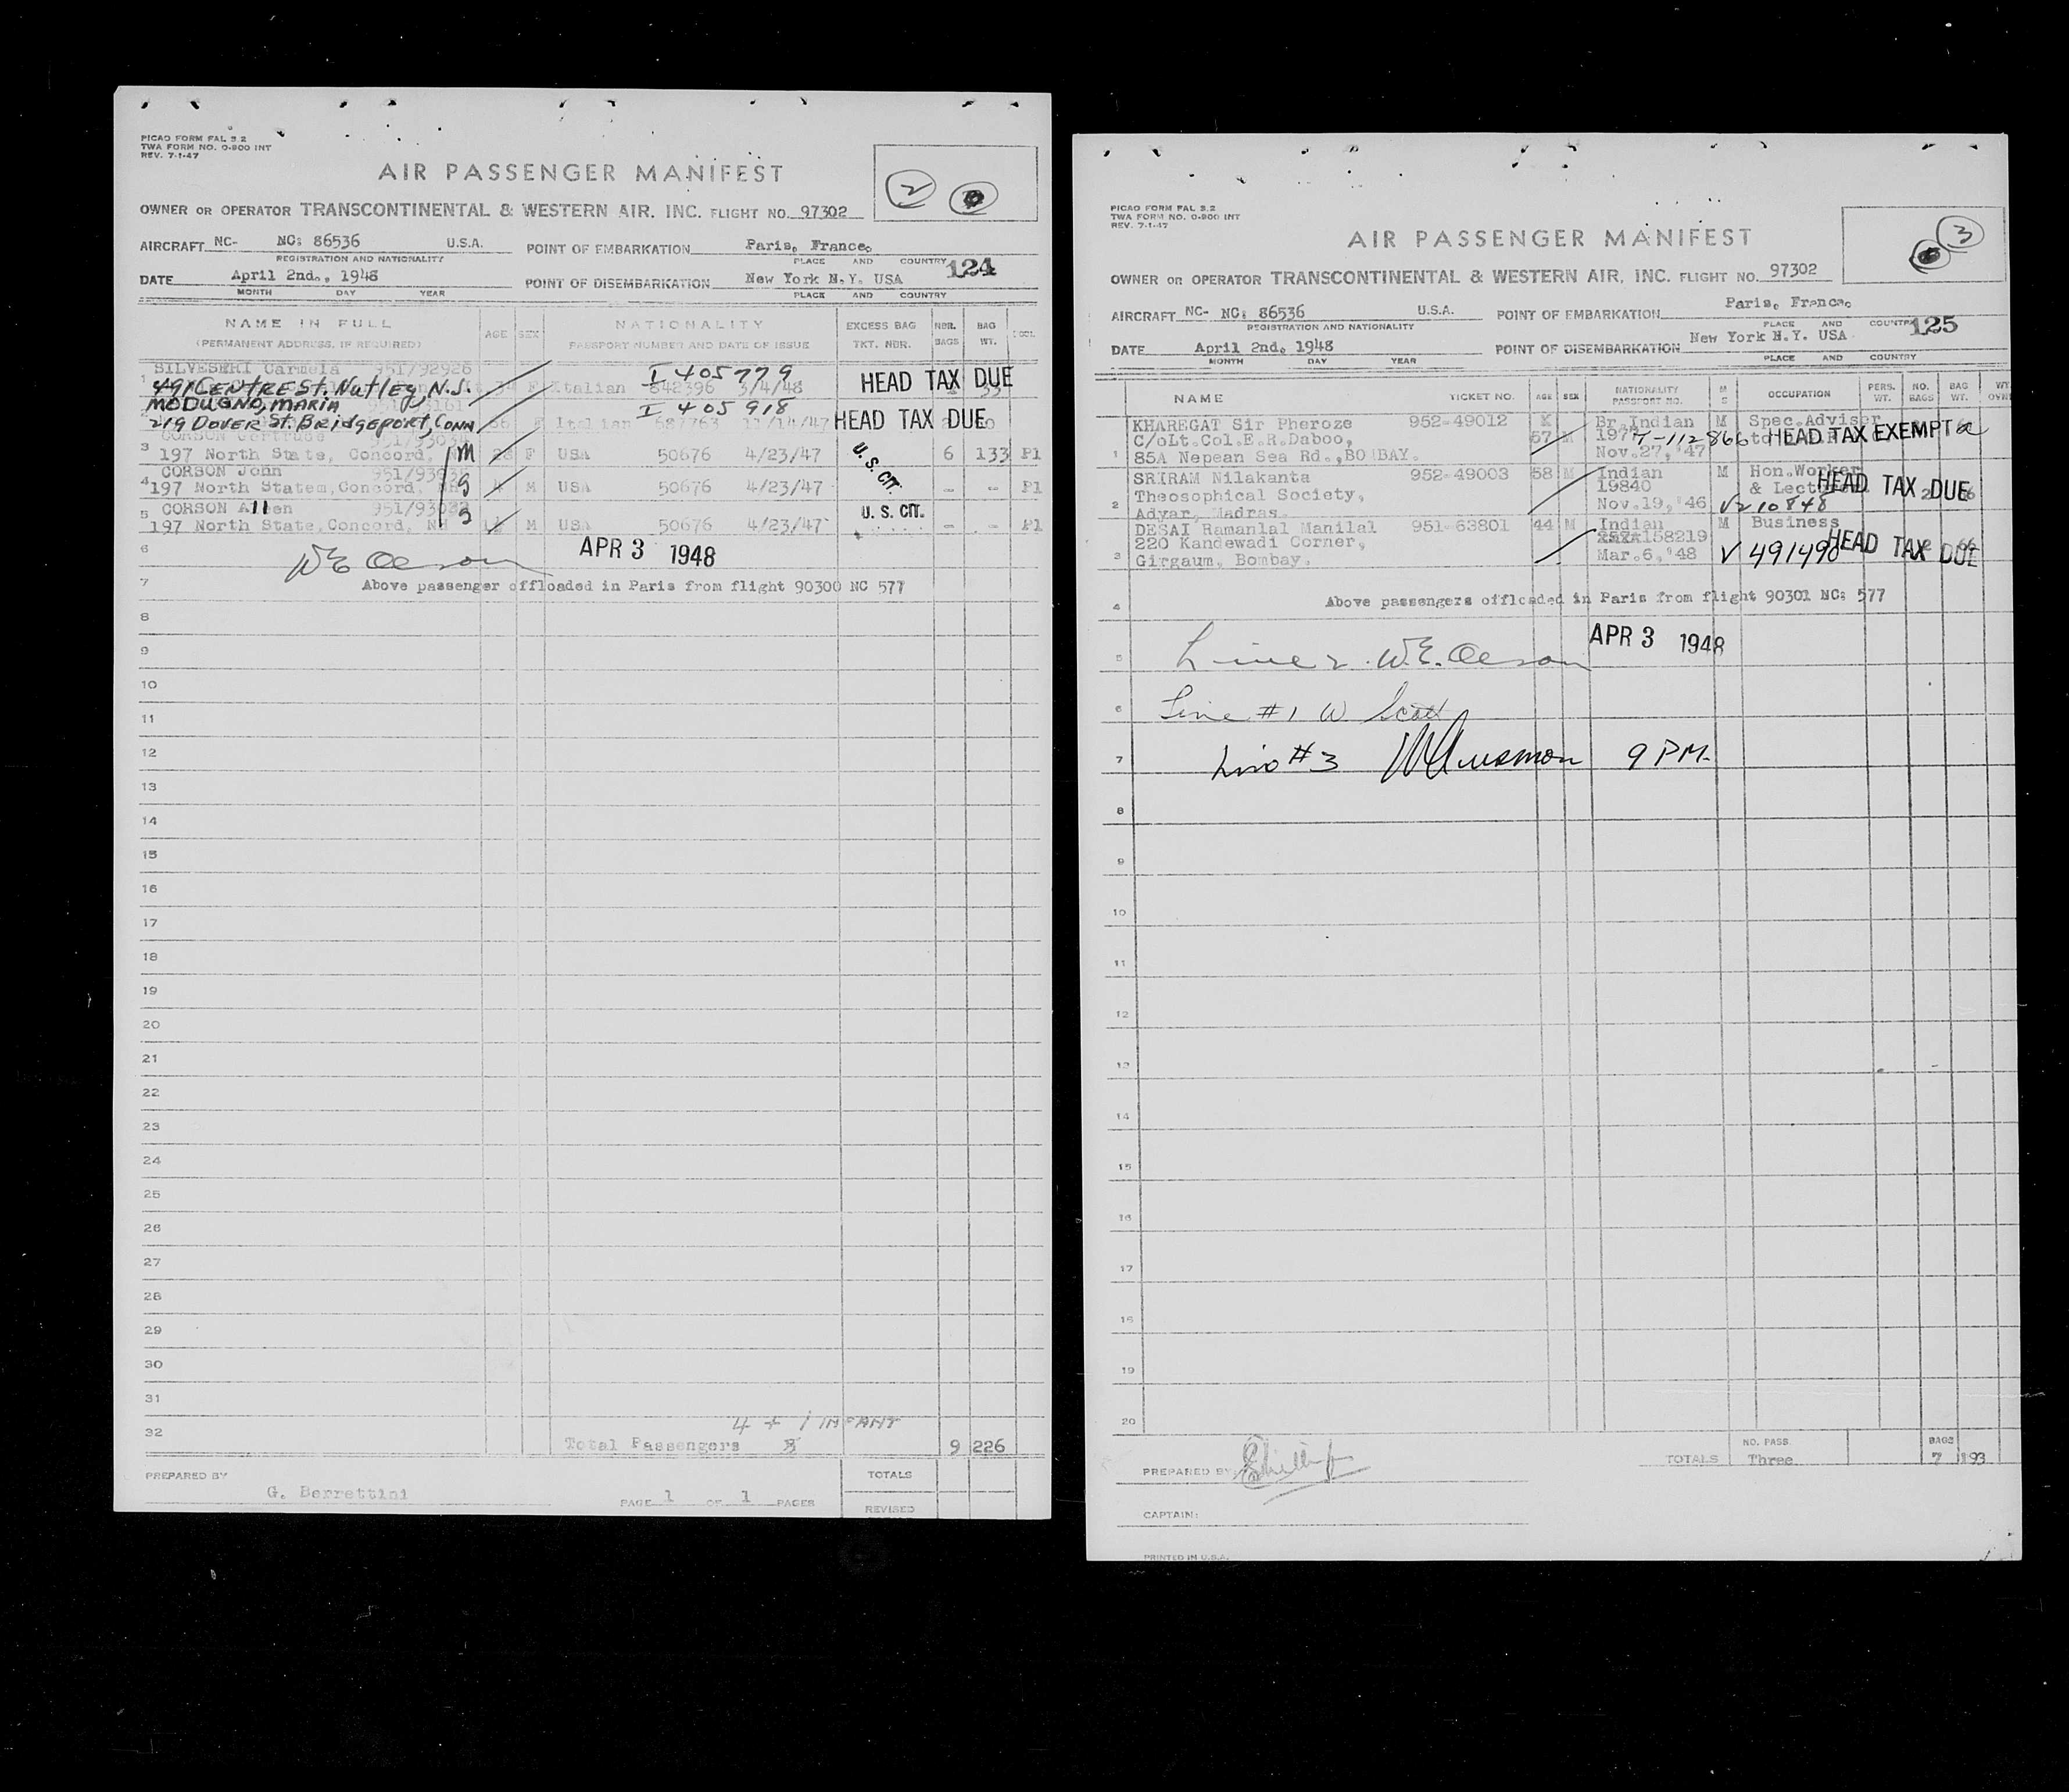 PICAO FORM FAL 3.2
TWA FORM NO. O-800 INT
REV. 7-1-47
AIR PASSENGER MANIFEST
2
OWNER OR OPERATOR TRANSCONTINENTAL & WESTERN AIR. INC. FLIGHT NO. 97302
AIRCRAFT NC- NC: 86536 U.S.A. POINT OF EMBARKATION Paris, France.
REGISTRATION AND NATIONALITY PLACE AND COUNTRY 124
DATE April 2nd., 1948 POINT OF DISEMBARKATION New York N.Y. USA
MONTH DAY YEAR PLACE AND COUNTRY
NAME IN FULL AGE SEX NATIONALITY EXCESS BAG NBR. BAG
(PERMANENT ADDRESS, IF REQUIRED) PASSPORT NUMBER AND DATE OF ISSUE TKT. NBR. BAGS WT.
SILVESERI Carmela 951/92926 I 405779
1 491 CENTRE ST. Nutley, N.J. F Italian 842396 3/4/48 HEAD TAX DUE
MODUGNO, MARIA I 405918
219 DOVER ST. BRIDGEPORT, CONN Italian 687763 11/14/47 HEAD TAX DUE
CORSON Gertrude
3 197 North State, Concord, M F USA 50676 4/23/47 U.S. CIT. 6 133 Pl
CORSON John
4 197 North Statem, Concord, NH S M USA 50676 4/23/47 - - Pl
5 CORSON Allen U. S. CIT.
197 North State, Concord, NH S M USA 50676 4/23/47 - - Pl
6 W E Oleson APR 3 1948
7 Above passenger offloaded in Paris from flight 90300 NC 577
8
9
10
11
12
13
14
15
16
17
18
19
20
21
22
23
24
25
26
27
28
29
30
31
4 + 1 INFANT
32 Total Passengers 9 226
PREPARED BY G. Berrettini TOTALS
PAGE 1 OF 1 PAGES REVISED
PICAO FORM FAL 3.2
TWA FORM NO. O-800 INT
REV. 7-1-47
3
AIR PASSENGER MANIFEST
OWNER OR OPERATOR TRANSCONTINENTAL & WESTERN AIR, INC. FLIGHT NO. 97302
AIRCRAFT NC- NC: 86536 U.S.A. POINT OF EMBARKATION Paris, France.
REGISTRATION AND NATIONALITY PLACE AND COUNTRY 125
DATE April 2nd, 1948 POINT OF DISEMBARKATION New York N.Y. USA
MONTH DAY YEAR PLACE AND COUNTRY
NAME TICKET NO. AGE SEX NATIONALITY PASSPORT NO. M S OCCUPATION PERS. WT. NO. BAGS BAG WT.
KHAREGAT Sir Pheroze 952-49012 Br.Indian M Spec.Adviser
C/oLt.Col.E.R.Daboo, 57 HEAD TAX EXEMPT
1 85A Nepean Sea Rd.,BOMBAY. Nov.27,'47
SRIRAM Nilakanta 952-49003 58 M Indian M Hon.Worker
Theosophical Society, 19840 HEAD TAX DUE
2 Adyar, Madras. Nov.19,'46 V210848
DESAI Ramanlal Manilal 951-63801 44 M Indian M Business
220 Kandewadi Corner, 158219 HEAD TAX DUE
3 Girgaum, Bombay. Mar.6,'48 V 491490
4 Above passengers offloaded in Paris from flight 90301 NC: 577
APR 3 1948
5 Line 2. W.E. Oleson
6 Line #1 W Scott
7 Line #3 9 PM.
8
9
10
11
12
13
14
15
16
17
18
19
20
NO. PASS. BAGS
TOTALS Three 7 193
PREPARED BY
CAPTAIN:
PRINTED IN U.S.A.